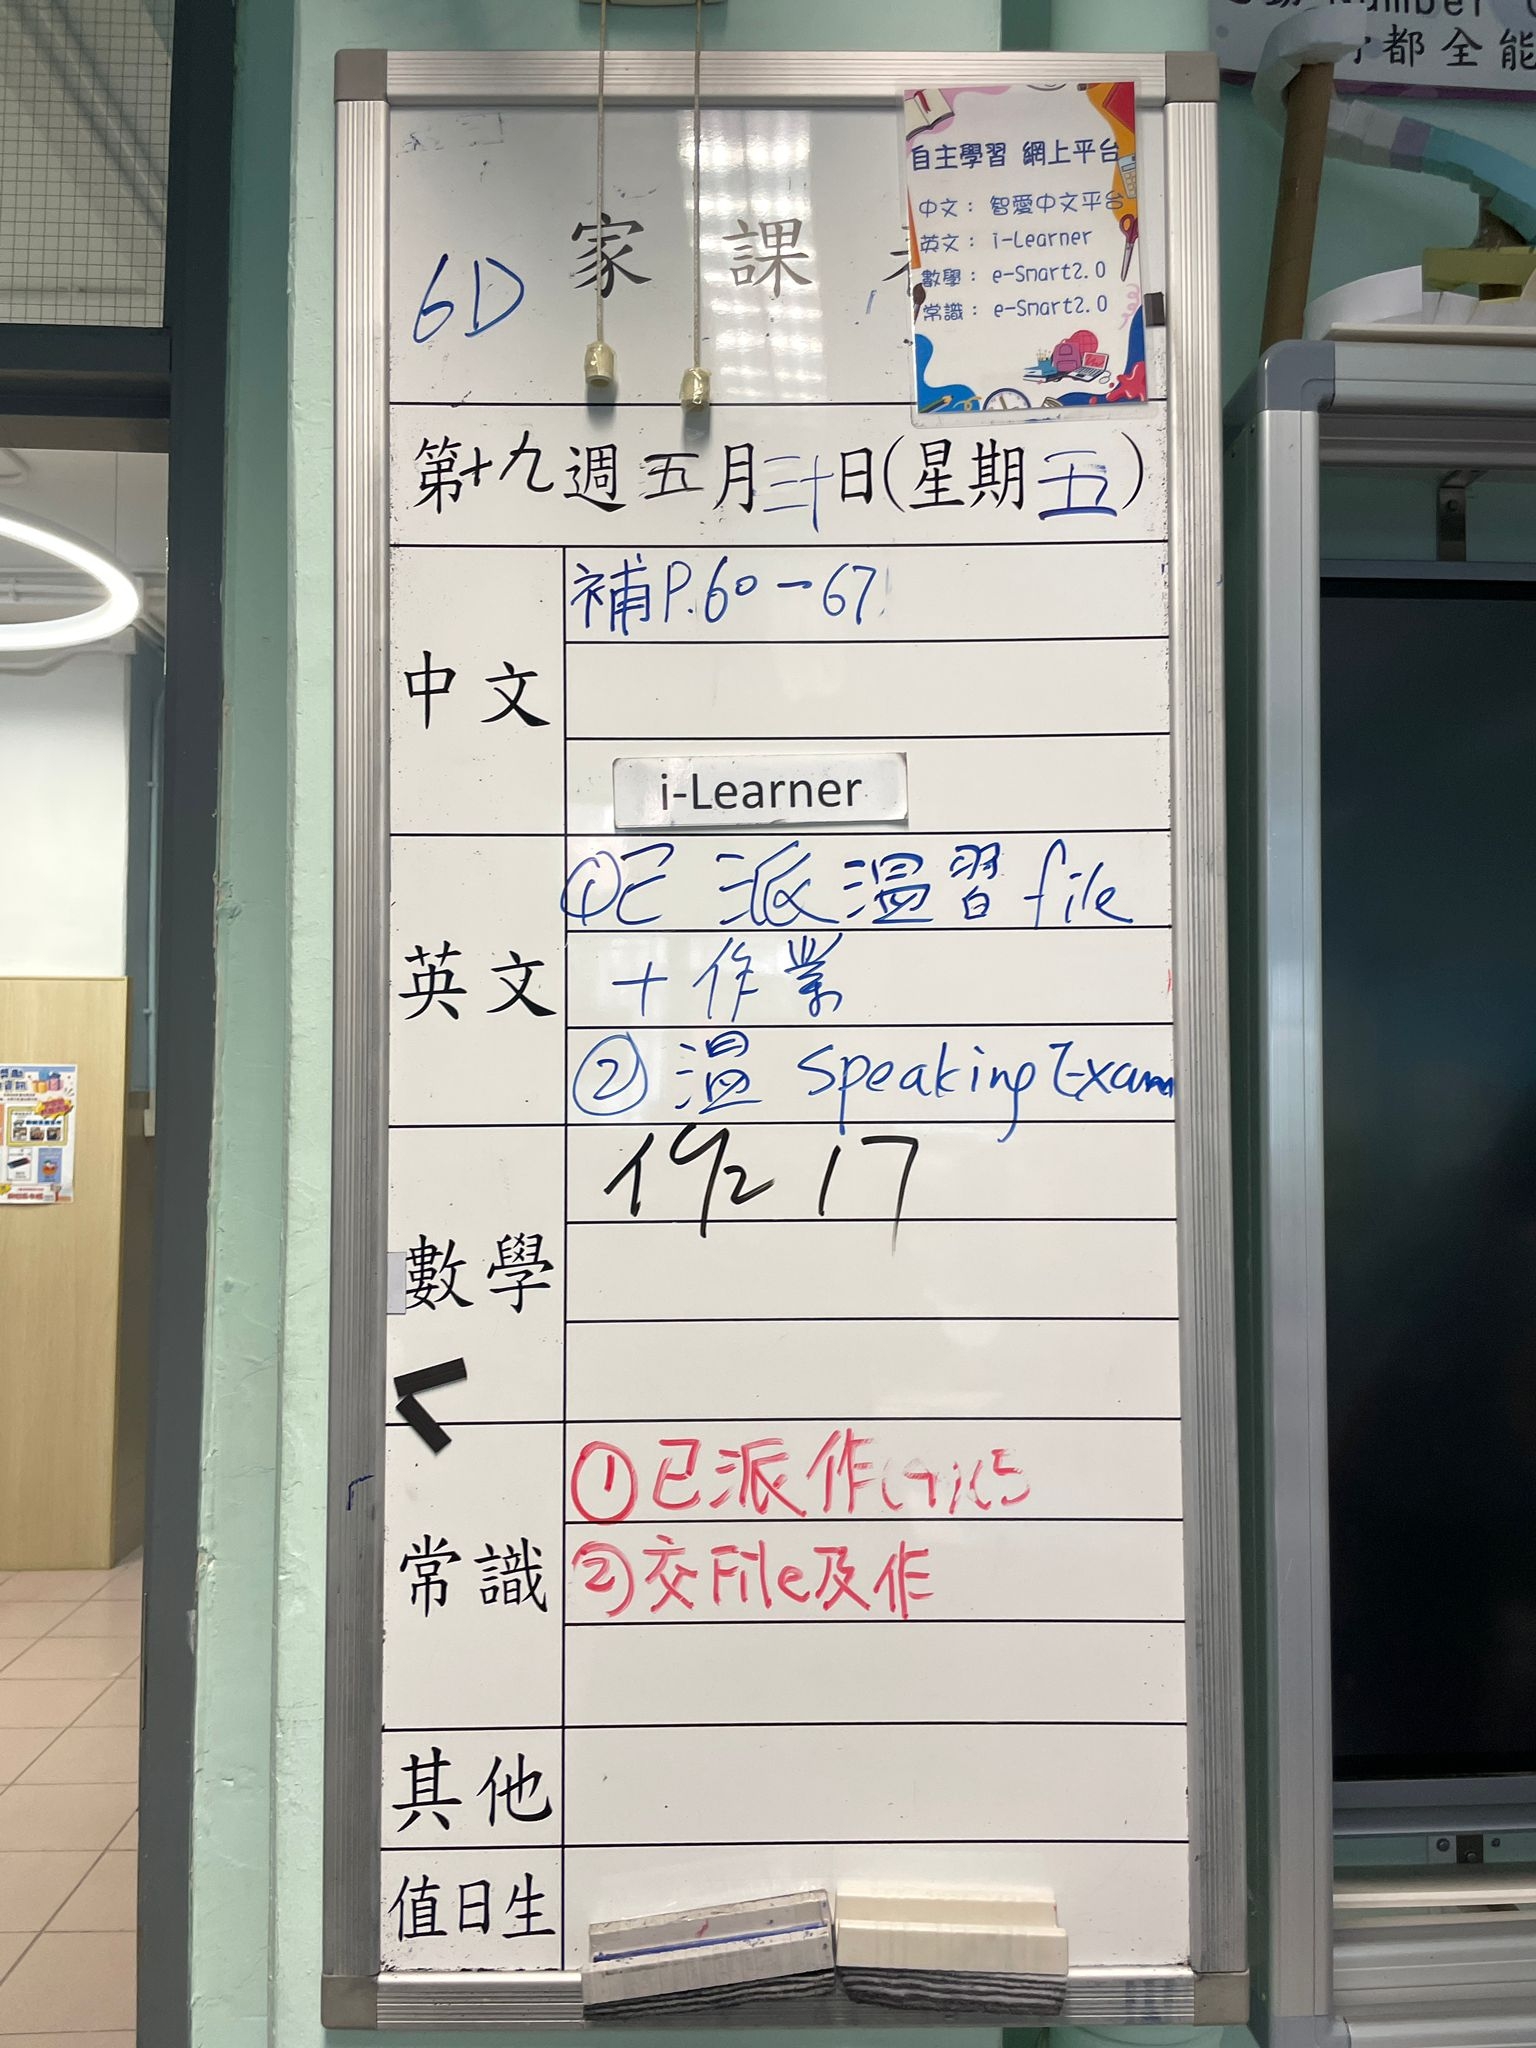 Number
都全能
自主學習 網上平台
中文： 智愛中文平台
英文： i-Learner
數學： e-Smart2.0
常識： e-Smart2.0
家課
6D
第十九週五月三十日(星期五)
中文
補P.60-67
i-Learner
英文
①已派溫習file
+作業
②溫 Speaking Exam
數學
作 17
常識
①已派作
②交File及作
其他
值日生